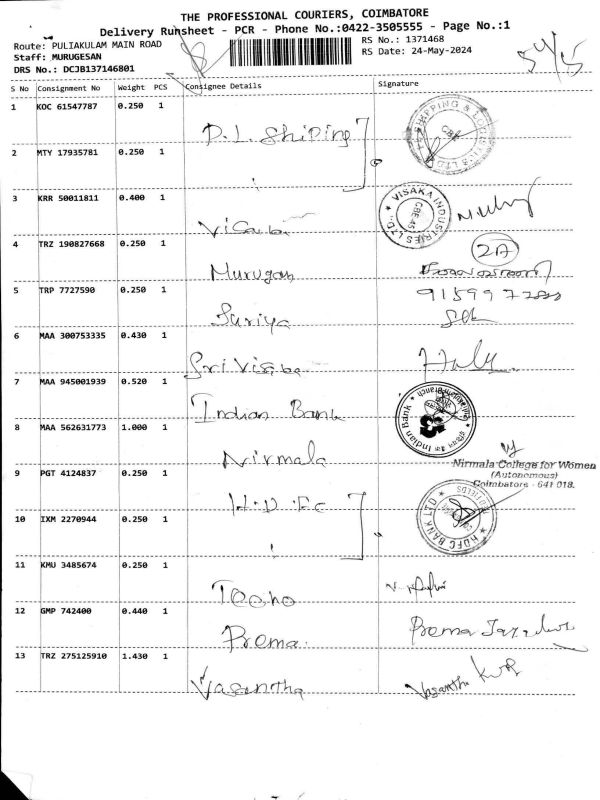 THE PROFESSIONAL COURIERS, COIMBATORE
Delivery Runsheet - PCR - Phone No.:0422-3505555 - Page No.:1
Route: PULIAKULAM MAIN ROAD
Staff: MURUGESAN
DRS No.: DCJB137146801
RS No.: 1371468
RS Date: 24-May-2024
S No Consignment No Weight PCS Consignee Details Signature
1 KOC 61547787 0.250 1
D.L. Shiping
2 MTY 17935781 0.250 1
3 KRR 50011811 0.400 1
VISAKA INDUSTRIES LTD
CBE-45
Visaka
4 TRZ 190827668 0.250 1
2A
Murugan
5 TRP 7727590 0.250 1
Suriya
6 MAA 300753335 0.430 1
Sri Visaba
7 MAA 945001939 0.520 1
Indian Bank
Indian Bank
8 MAA 562631773 1.000 1
Nirmala
Nirmala College for Women
(Autonomous)
Coimbatore - 641 018.
9 PGT 4124837 0.250 1
H.D.F.C
10 IXM 2270944 0.250 1
HDFC BANK LTD
11 KMU 3485674 0.250 1
12 GMP 742400 0.440 1
Prema
Prema
13 TRZ 275125910 1.430 1
Vasantha
Vasantha